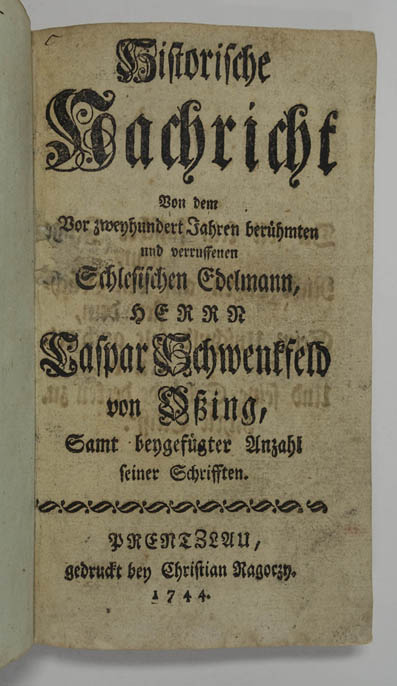 Historische
Nachricht
Von dem
Vor zweyhundert Jahren berühmten
und verruffenen
Schlesischen Edelmann,
HERRN
Caspar Schwenkfeld
von Oßing,
Samt beygefügter Anzahl
seiner Schrifften.
PRENTZLAU,
gedruckt bey Christian Ragoczy.
1744.